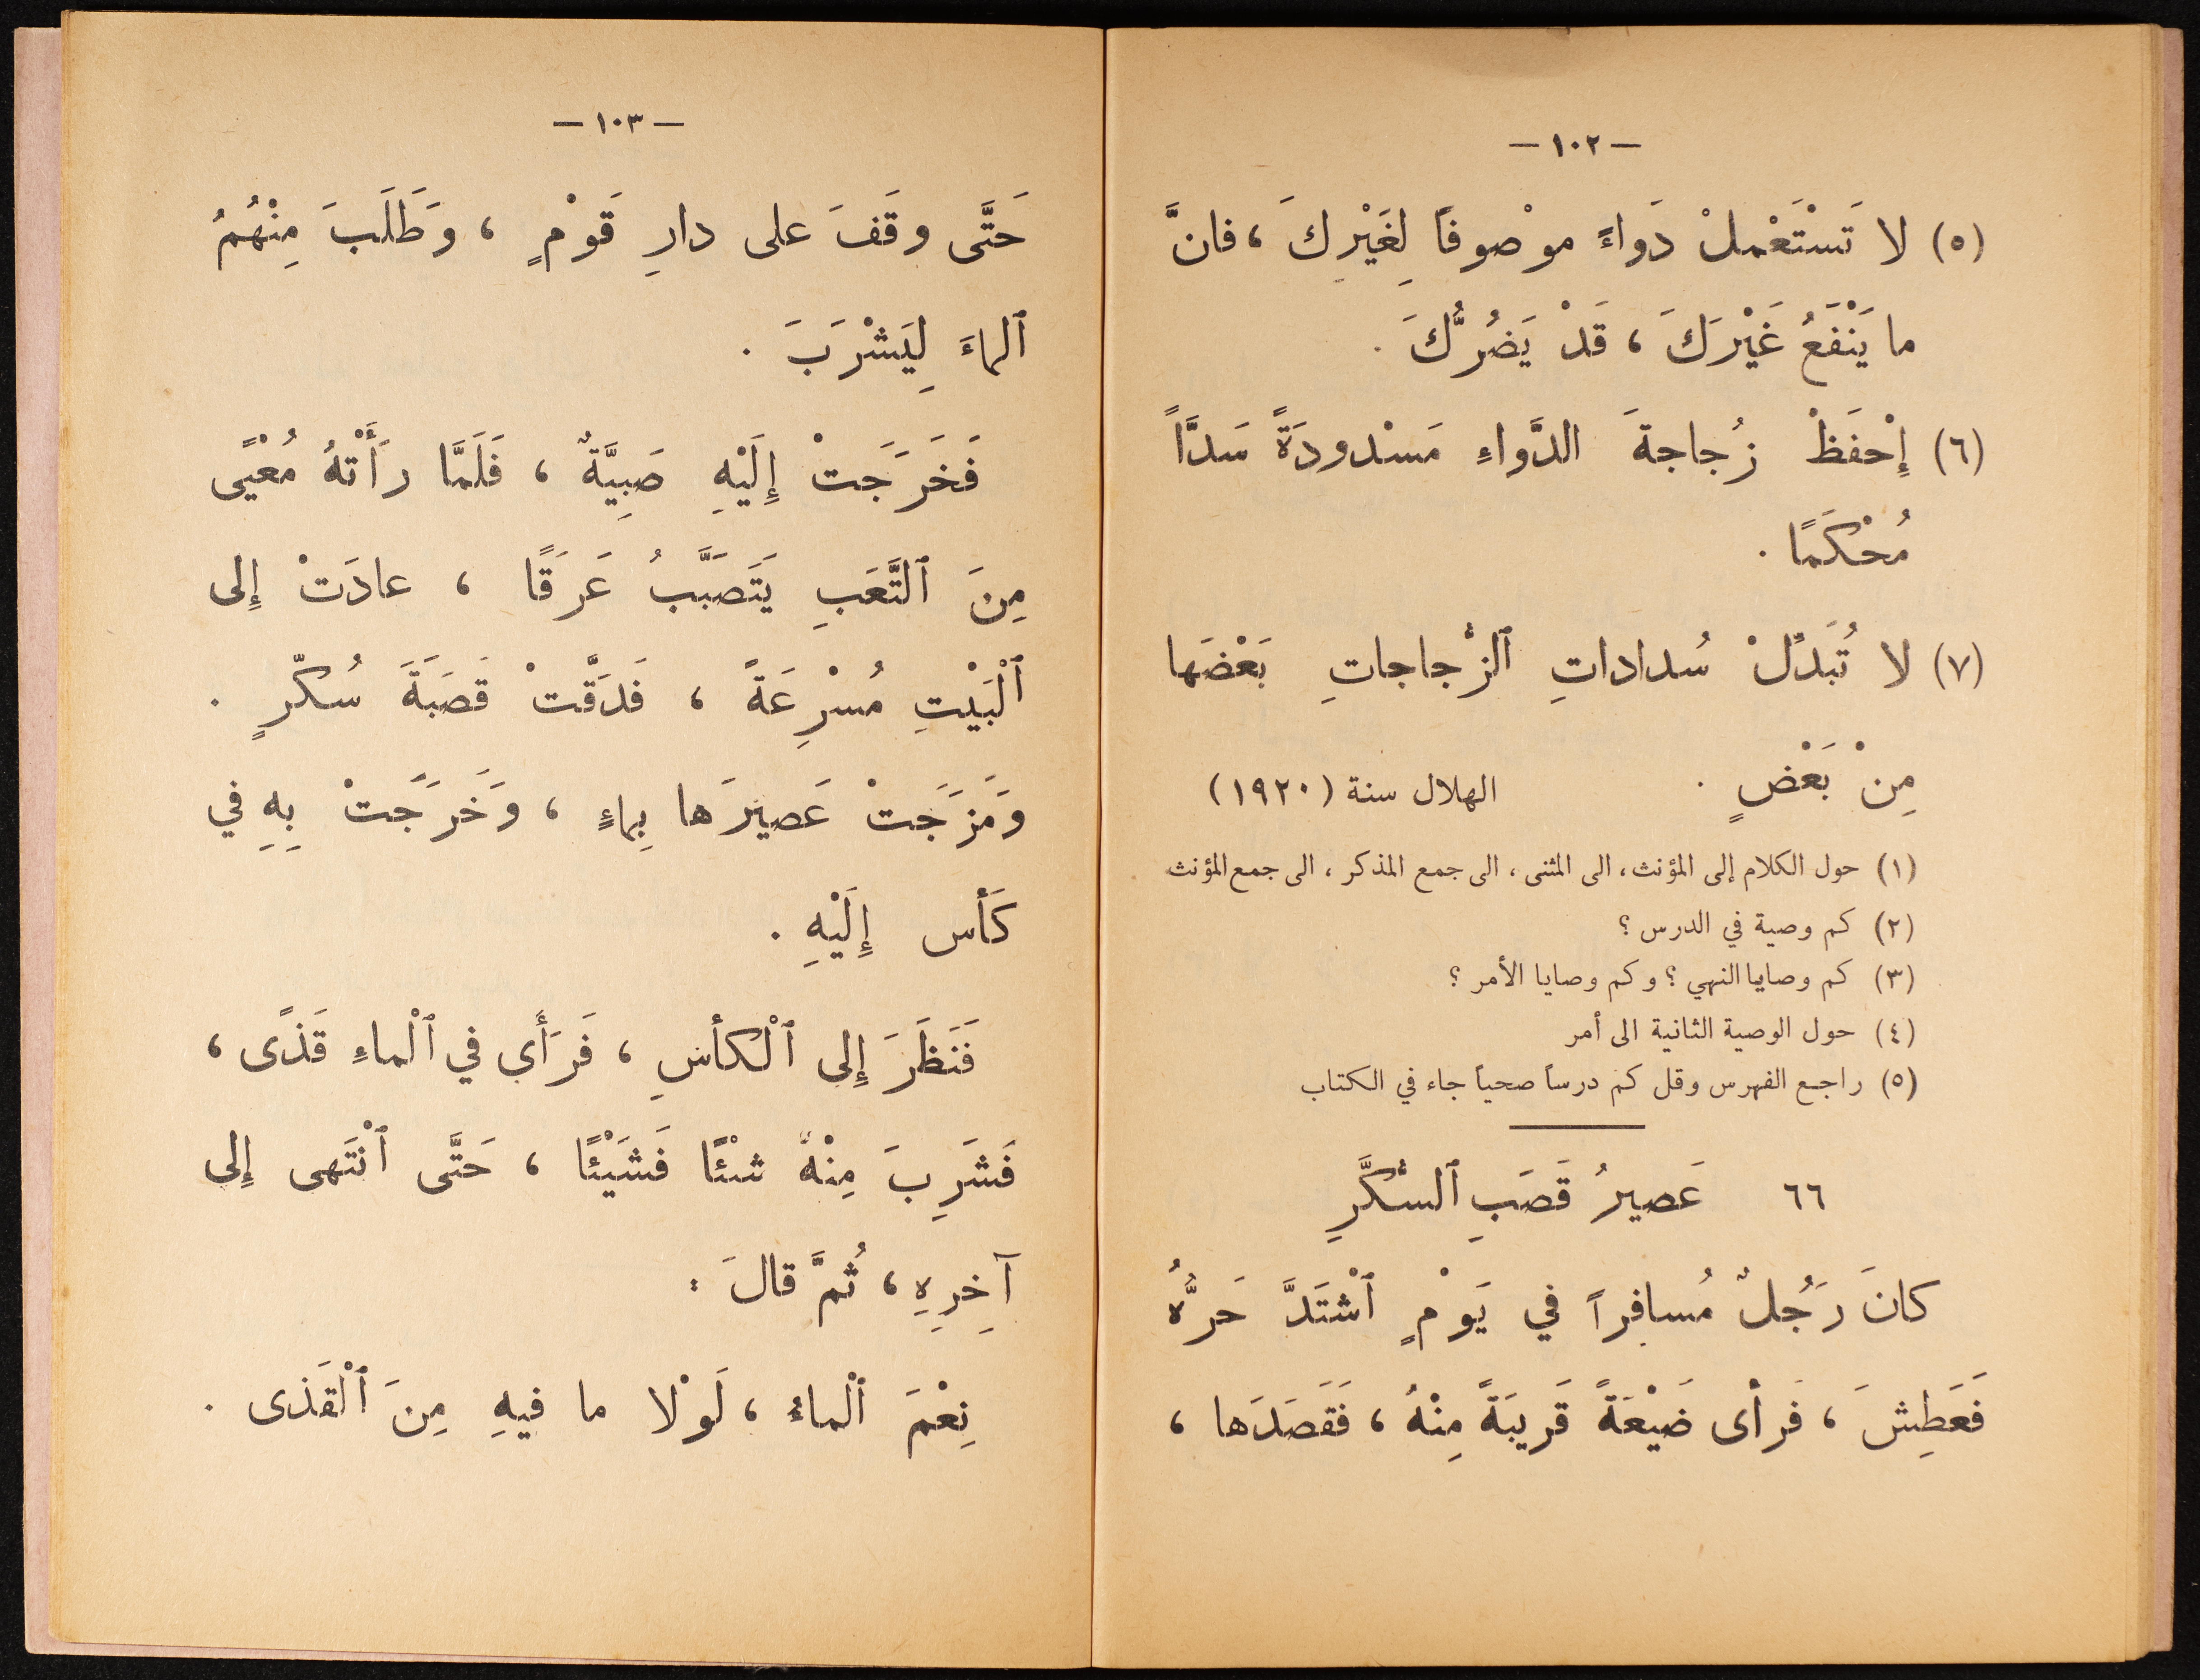 — ١٠٢ —
(٥) لا تَسْتَعْملْ دَواءً موْصوفاً لِغَيْرِكَ ، فانَّ
ما يَنْفَعُ غَيْرَكَ ، قَدْ يَضُرُّكَ .
(٦) إِحْفَظْ زُجاجةَ الدَّواءِ مَسْدودَةً سَدَّاً
مُحْكَمًا .
(٧) لا تُبَدِّلْ سُداداتِ ٱلزُّجاجاتِ بَعْضَها
مِنْ بَعْضٍ . الهلال سنة (١٩٢٠)
(١) حول الكلام إلى المؤنث ، الى المثنى ، الى جمع المذكر ، الى جمع المؤنث
(٢) كم وصية في الدرس ؟
(٣) كم وصايا النهي ؟ وكم وصايا الأمر ؟
(٤) حول الوصية الثانية الى أمر
(٥) راجع الفهرس وقل كم درساً صحياً جاء في الكتاب
٦٦ عَصيرُ قَصَبِ ٱلسُّكَّرِ
كانَ رَجُلٌ مُسافِراً في يَوْمٍ ٱشْتَدَّ حَرُّهُ
فَعَطِشَ ، فَرأى ضَيْعَةً قَريبَةً مِنْهُ ، فَقَصَدَها ،
— ١٠٣ —
حَتَّى وقَفَ على دارِ قَوْمٍ ، وَطَلَبَ مِنْهُمُ
ٱلماءَ لِيَشْرَبَ .
فَخَرَجَتْ إِلَيْهِ صَبِيَّةٌ ، فَلَمَّا رَأَتْهُ مُعْيًى
مِنَ ٱلتَّعَبِ يَتَصَبَّبُ عَرَقًا ، عادَتْ إِلى
ٱلْبَيْتِ مُسْرِعَةً ، فَدَقَّتْ قَصَبَةَ سُكّرٍ .
وَمَزَجَتْ عَصيرَها بِماءٍ ، وَخَرَجَتْ بِهِ في
كَأس إِلَيْهِ .
فَنَظَرَ إِلى ٱلْكأسِ ، فَرَأَى في ٱلْماءِ قَذًى ،
فَشَرِبَ مِنْهُ شئْئًا فَشَيْئًا ، حَتَّى ٱنْتَهى إِلى
آخِرِهِ ، ثُمَّ قالَ :
نِعْمَ ٱلْماءُ ، لَوْلا ما فيهِ مِنَ ٱلْقَذى .